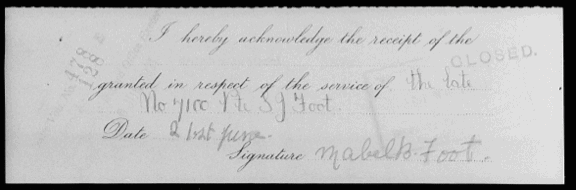 I hereby acknowledge the receipt of the
CLOSED.
granted in respect of the service of the late
No 7100 Pte S J Foot.
Date 2
Signature Mabel B. Foot.